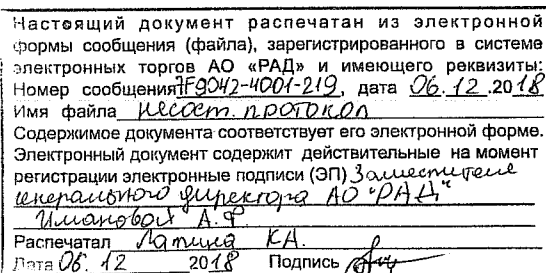 Настоящий документ распечатан из электронной
формы сообщения (файла), зарегистрированного в системе
электронных торгов АО «РАД» и имеющего реквизиты:
Номер сообщения 7F9042-4001-219, дата 06.12.2018
Имя файла несост. протокол
Содержимое документа соответствует его электронной форме.
Электронный документ содержит действительные на момент
регистрации электронные подписи (ЭП) Заместителя
генерального директора АО "РАД"
Имановой А.Ф.
Распечатал Лапина К.А.
Дата 06.12 2018 Подпись